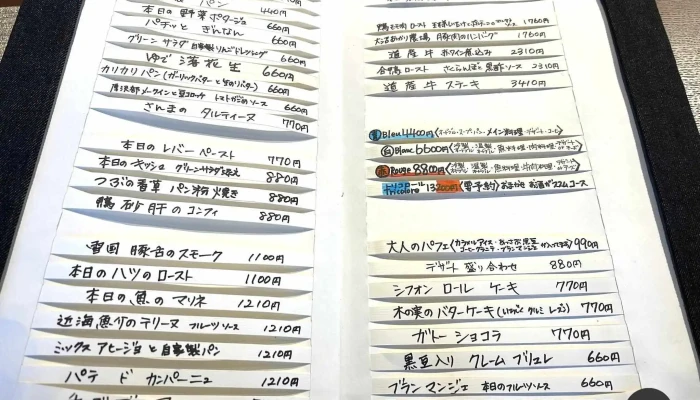 パン 440円
本日の野菜ポタージュ 660円
パチッと ぎんなん 660円
グリーン サラダ 自家製りんごドレッシング 660円
ゆで 落花生 660円
カリカリ パン (ガーリックバターと 生のりバター) 660円
厚沢部メークインと豆コロッケ トマトガーリックソース 660円
さんまの タルティーヌ 770円
本日の レバー ペースト 770円
本日の キッシュ グリーンサラダ添え 880円
つぶの香草 パン粉焼き 880円
鴨 砂肝 の コンフィ 880円
雪国 豚舌のスモーク 1100円
本日の ハツの ロースト 1100円
本日の 魚の マリネ 1210円
近海魚介のテリーヌ フルーツソース 1210円
ミックス アヒージョ と 自家製パン 1210円
パテ ド カンパーニュ 1210円
鴨もも肉 ロースト 1760円
豚肉のハンバーグ 1760円
道産牛 赤ワイン煮込み 2310円
合鴨 ロースト さくらんぼと 黒酢ソース 2310円
道産牛 ステーキ 3410円
青 Bleu 4400円 メイン料理・デザート・コーヒー
白 Blanc 6600円 魚料理・肉料理・デザート
赤 Rouge 8800円 魚料理・肉料理
トリコロール Tricolore 13200円 (要予約) おまかせ お酒がススムコース
大人のパフェ 990円
デザート 盛り合わせ 880円
シフォン ロール ケーキ 770円
木の実のバターケーキ (いちじく クルミ レーズン) 770円
ガトー ショコラ 770円
黒豆入り クレーム ブリュレ 660円
ブランマンジェ 本日のフルーツソース 660円